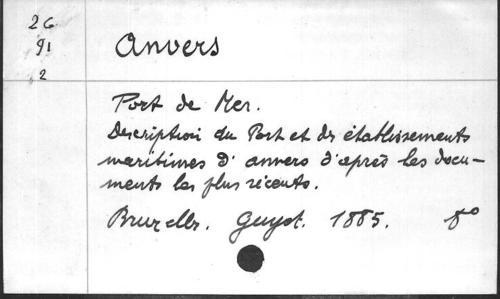 26
91
2
Anvers
Port de Mer.
Description du Port et des établissements
maritimes d'anvers d'après les docu-
ments les plus récents.
Bruxelles. Guyot. 1885. 8°